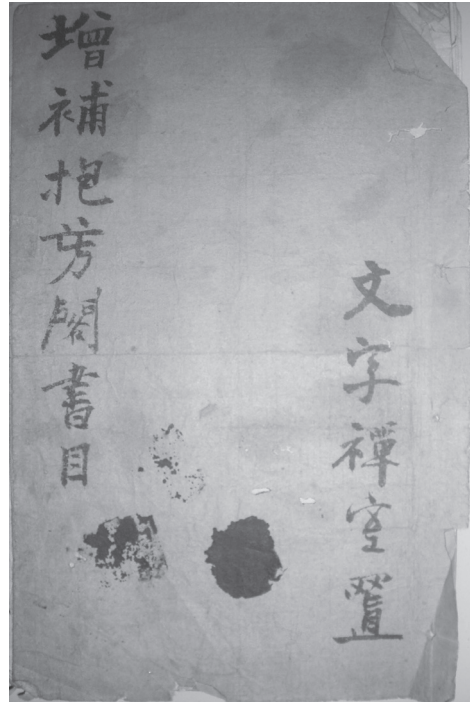 文字禪室置
增補抱芳閣書目